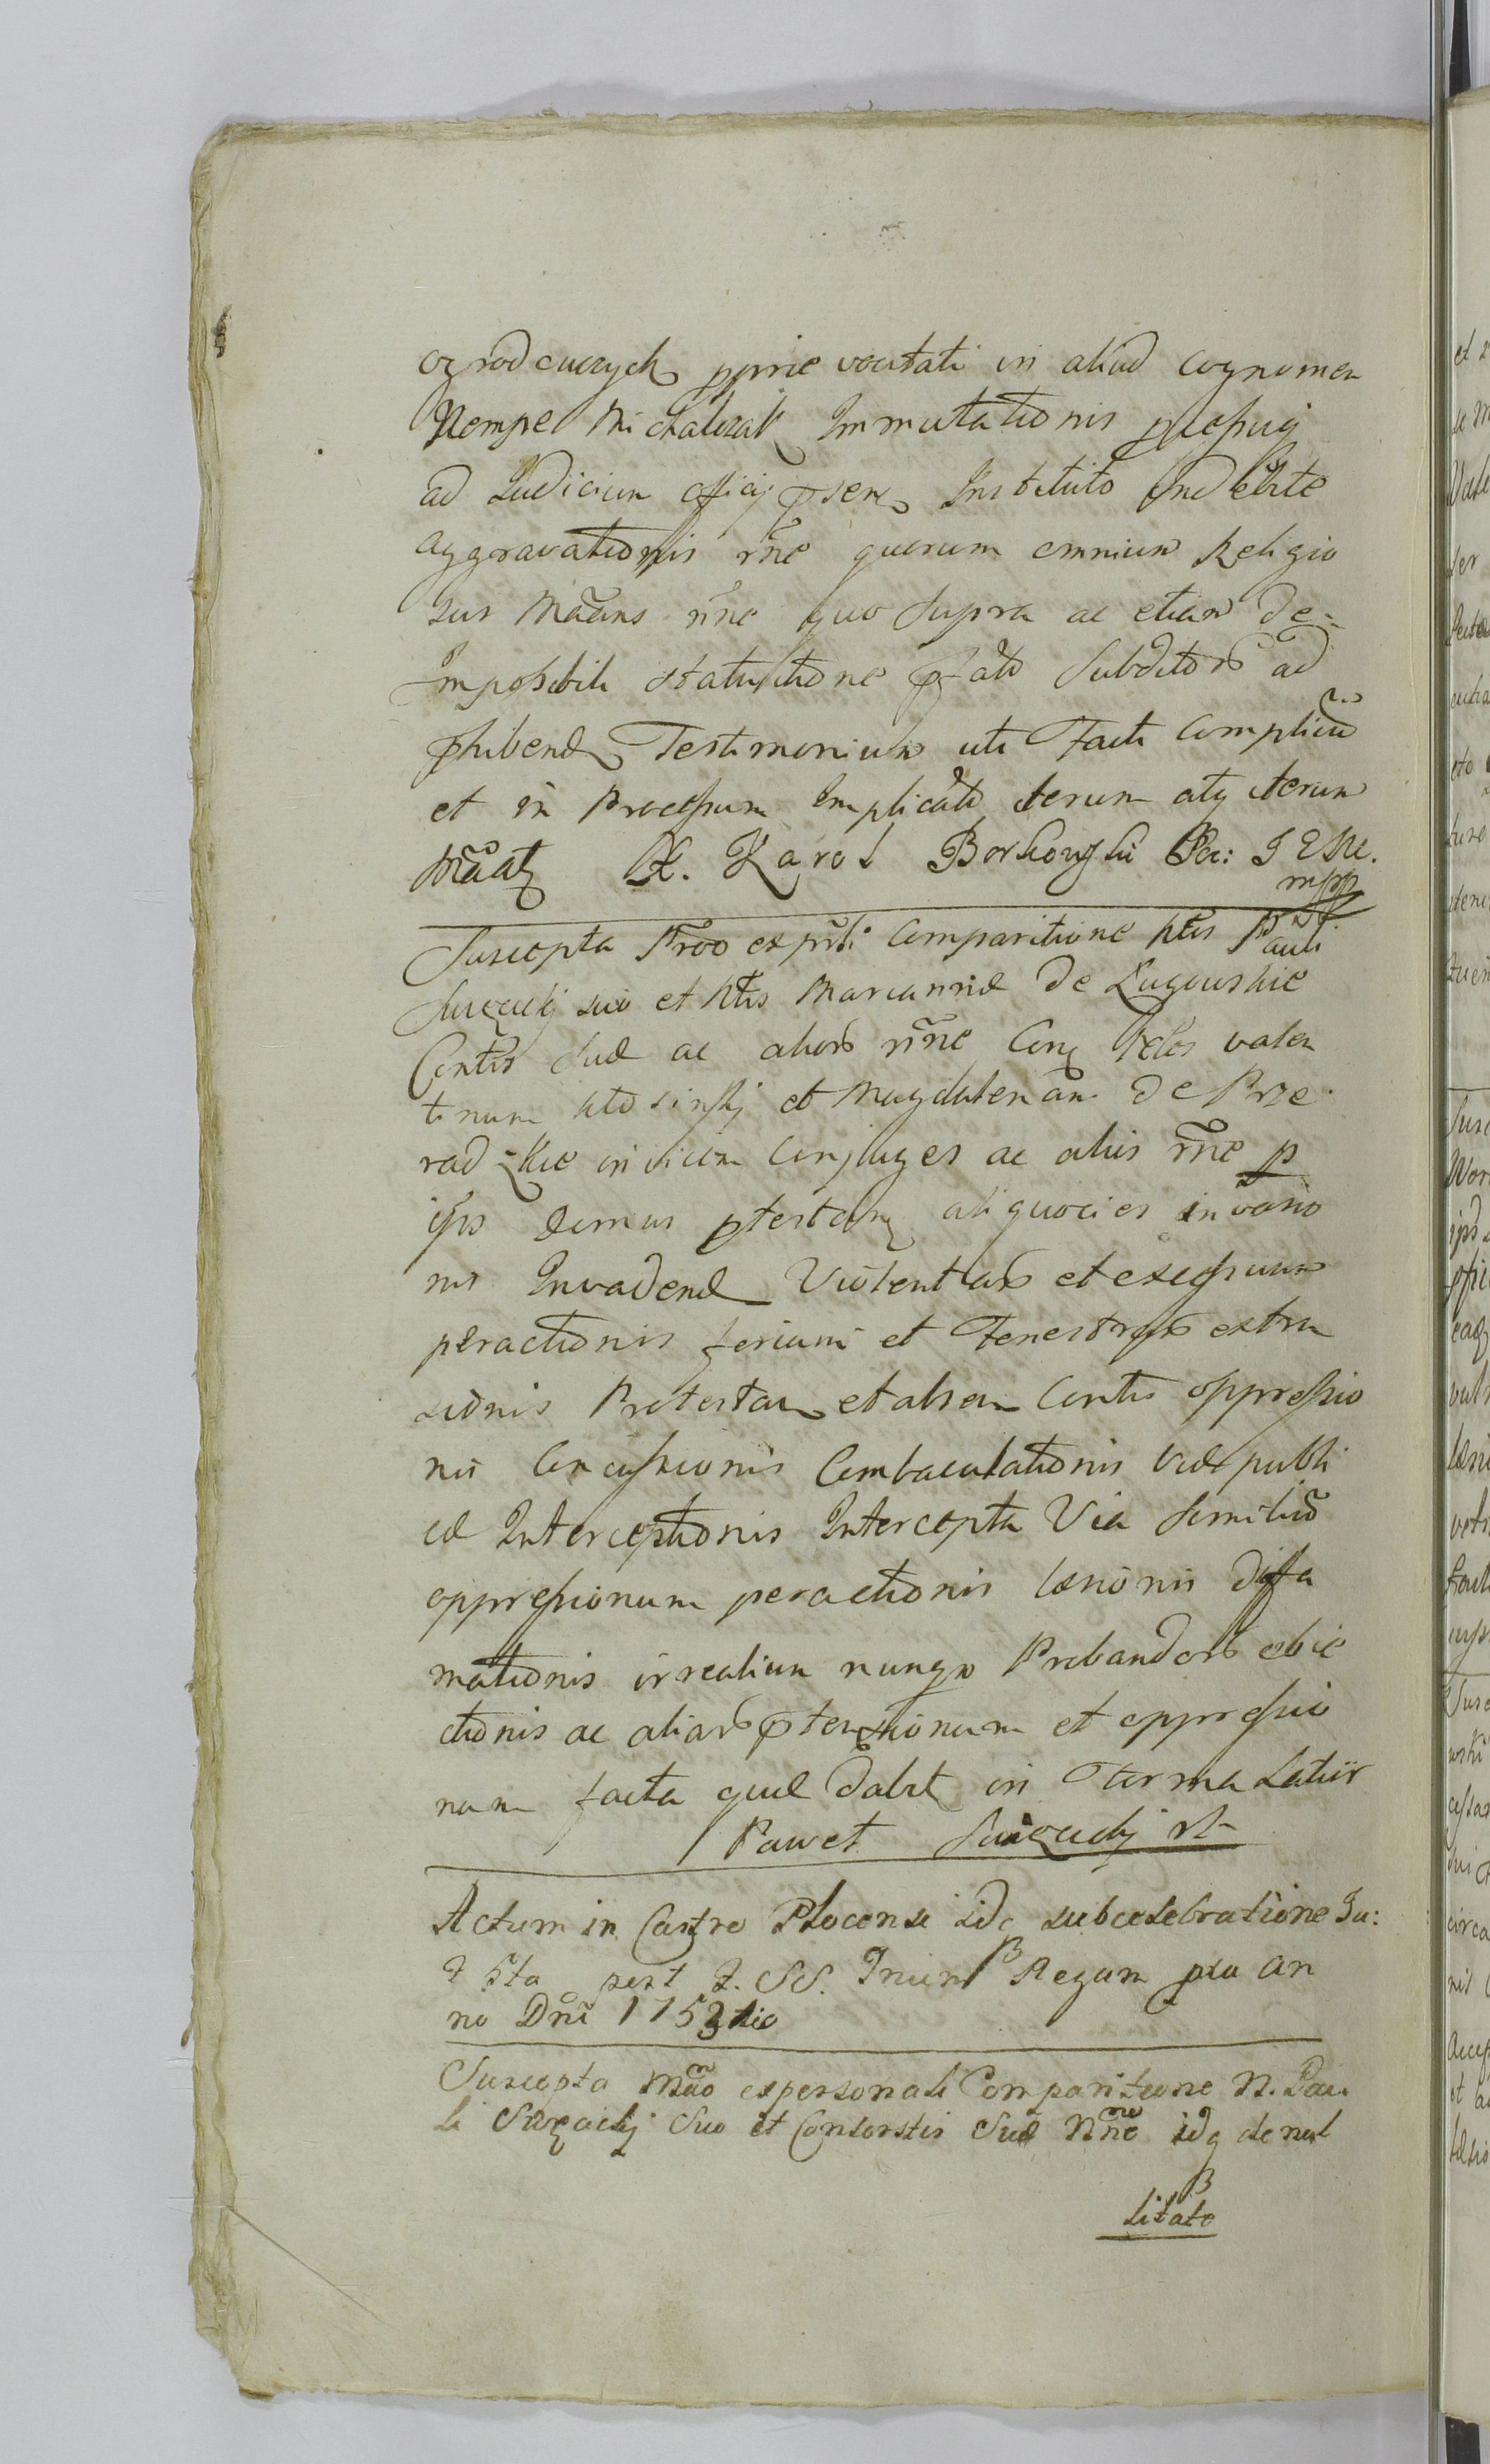 ogrodowych pprie vocitati in aliud cognomen
Nempe Michalczak Immutationis processuq
ad Judicium officij psens Instituto Indebite
aggravationis rñe quorum omnium Religio
sus Mãans rñe quo supra ac etiam de=
Imposibili statuitione pfato subditor ad
phibend Testimonium uti Facti complicũ
et in Processum Implicato iterum atq iterum
Mãat X. Karol Borkowski
mpp
Suscepta Prõo ex prli Comparitione Nlis Pauli
suo et Nlis Marianne de Lugowskie
Contis sue ac alior rñe Conq Nbles valen
tinum et Magdalenam de Prze
radzkie invicem Conjuges ac aliis rñe p
ipsos domus ptestan aliquocies in vario
nis Invadend Violentiar et excessuum
peractionis feriami et Fenestrar extru
sionis Protestan et absen Contis oppressio
nis Concussionis Combaculationis viae publi
cae Interceptionis Intercepta Via similiũ
oppressionum peractionis lesionis diffa
mationis irrealium nunqo Probandor obie
ctionis ac aliar ptensionum et oppressio
num facta quae dabit in Forma Latiur
Paweł
Actum in Castro Plocensi sub celebratione Ju:
post F. SS. Trium Regum pro an
no Dni 1753tio
Suscepta Mão ex personali Comparitione N. Pau
li Suo et Consortis Sue Nñe idq de nul
litate